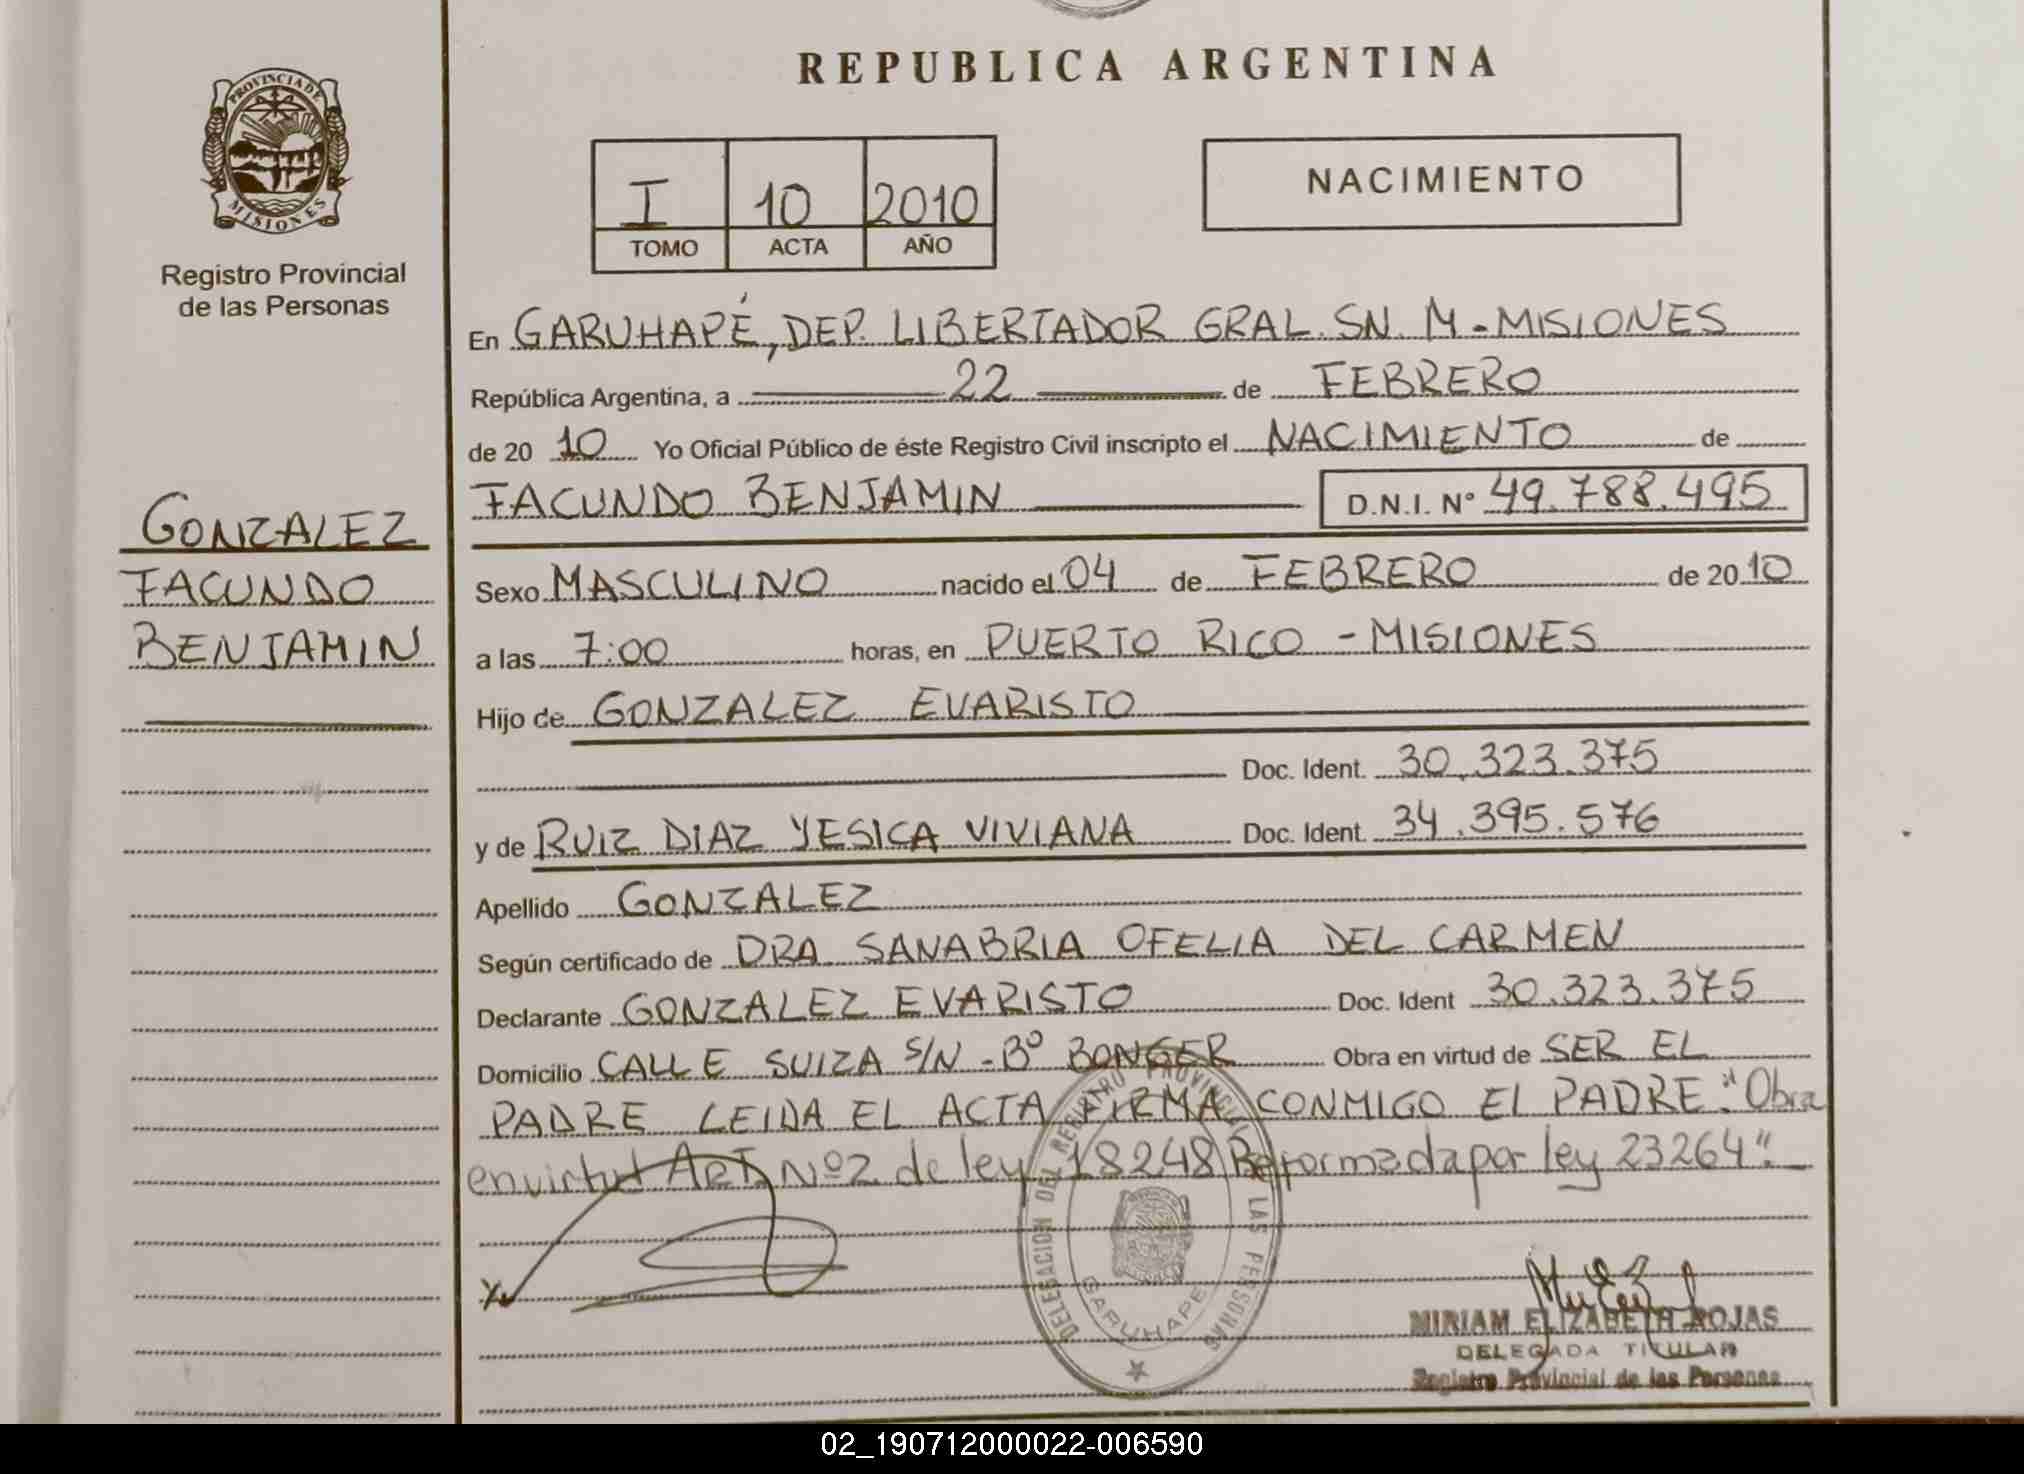 PROVINCIA DE
MISIONES
Registro Provincial
de las Personas
GONZALEZ
FACUNDO
BENJAMIN
REPUBLICA ARGENTINA
I 10 2010
TOMO ACTA AÑO
NACIMIENTO
En GARUHAPÉ, DEP. LIBERTADOR GRAL. SN. M - MISIONES
República Argentina, a 22 de FEBRERO
de 2010 Yo Oficial Público de éste Registro Civil inscripto el NACIMIENTO de
FACUNDO BENJAMIN D.N.I. Nº 49.788.495
Sexo MASCULINO nacido el 04 de FEBRERO de 2010
a las 7:00 horas, en PUERTO RICO - MISIONES
Hijo de GONZALEZ EVARISTO
Doc. Ident. 30.323.375
y de RUIZ DIAZ YESICA VIVIANA Doc. Ident. 34.395.576
Apellido GONZALEZ
Según certificado de DRA SANABRIA OFELIA DEL CARMEN
Declarante GONZALEZ EVARISTO Doc. Ident 30.323.375
Domicilio CALLE SUIZA S/N - Bº BONGER Obra en virtud de SER EL
PADRE LEIDA EL ACTA FIRMA CONMIGO El PADRE. "Obra
en virtud ART. Nº2 de ley 18248 Reformada por ley 23264".
DELEGACION DEL REGISTRO PROVINCIAL DE LAS PERSONAS
GARUHAPE
MIRIAM ELIZABETH ROJAS
DELEGADA TITULAR
Registro Provincial de las Personas
02_190712000022-006590